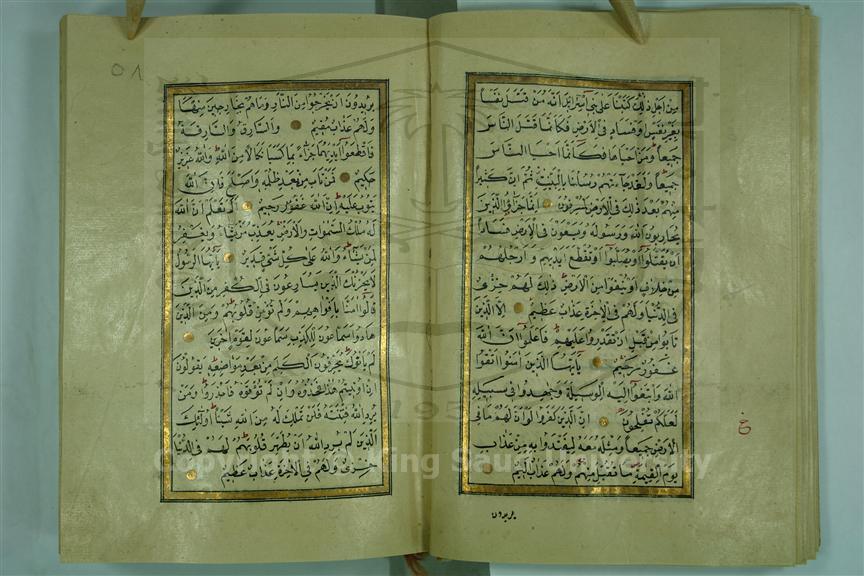 من اجل ذلك كتبنا على بني اسرائيل انه من قتل نفسا
بغير نفس او فساد في الارض فكانما قتل الناس
جميعا ومن احياها فكانما احيا الناس
جميعا ولقد جاءتهم رسلنا بالبينت ثم ان كثيرا
منهم بعد ذلك في الارض لمسرفون انما جزاؤا الذين
يحاربون الله ورسوله ويسعون في الارض فسادا
ان يقتلوا او يصلبوا او تقطع ايديهم وارجلهم
من خلاف او ينفوا من الارض ذلك لهم خزى
في الدنيا ولهم في الاخرة عذاب عظيم الا الذين
تابوا من قبل ان تقدروا عليهم فاعلموا ان الله
غفور رحيم يا ايها الذين امنوا اتقوا
الله وابتغوا اليه الوسيلة وجاهدوا في سبيله
لعلكم تفلحون ان الذين كفروا لو ان لهم ما في
الارض جميعا ومثله معه ليفتدوا به من عذاب
يوم القيمة ما تقبل منهم ولهم عذاب اليم
يريدون
يريدون ان يخرجوا من النار وما هم بخارجين منها
ولهم عذاب مقيم والسارق والسارقة
فاقطعوا ايديهما جزاء بما كسبا نكالا من الله والله عزيز
حكيم فمن تاب من بعد ظلمه واصلح فان الله
يتوب عليه ان الله غفور رحيم الم تعلم ان الله
له ملك السموات والارض يعذب من يشاء ويغفر
لمن يشاء والله على كل شئ قدير يا ايها الرسول
لا يحزنك الذين يسارعون في الكفر من الذين
قالوا امنا بافواههم ولم تؤمن قلوبهم ومن الذين
هادوا سماعون للكذب سماعون لقوم اخرين
لم ياتوك يحرفون الكلم من بعد مواضعه يقولون
ان اوتيتم هذا فخذوه وان لم تؤتوه فاحذروا ومن
يرد الله فتنته فلن تملك له من الله شيئا اولئك
الذين لم يرد الله ان يطهر قلوبهم لهم في الدنيا
خزى ولهم في الاخرة عذاب عظيم
٥٨
Copyright © King Saud University